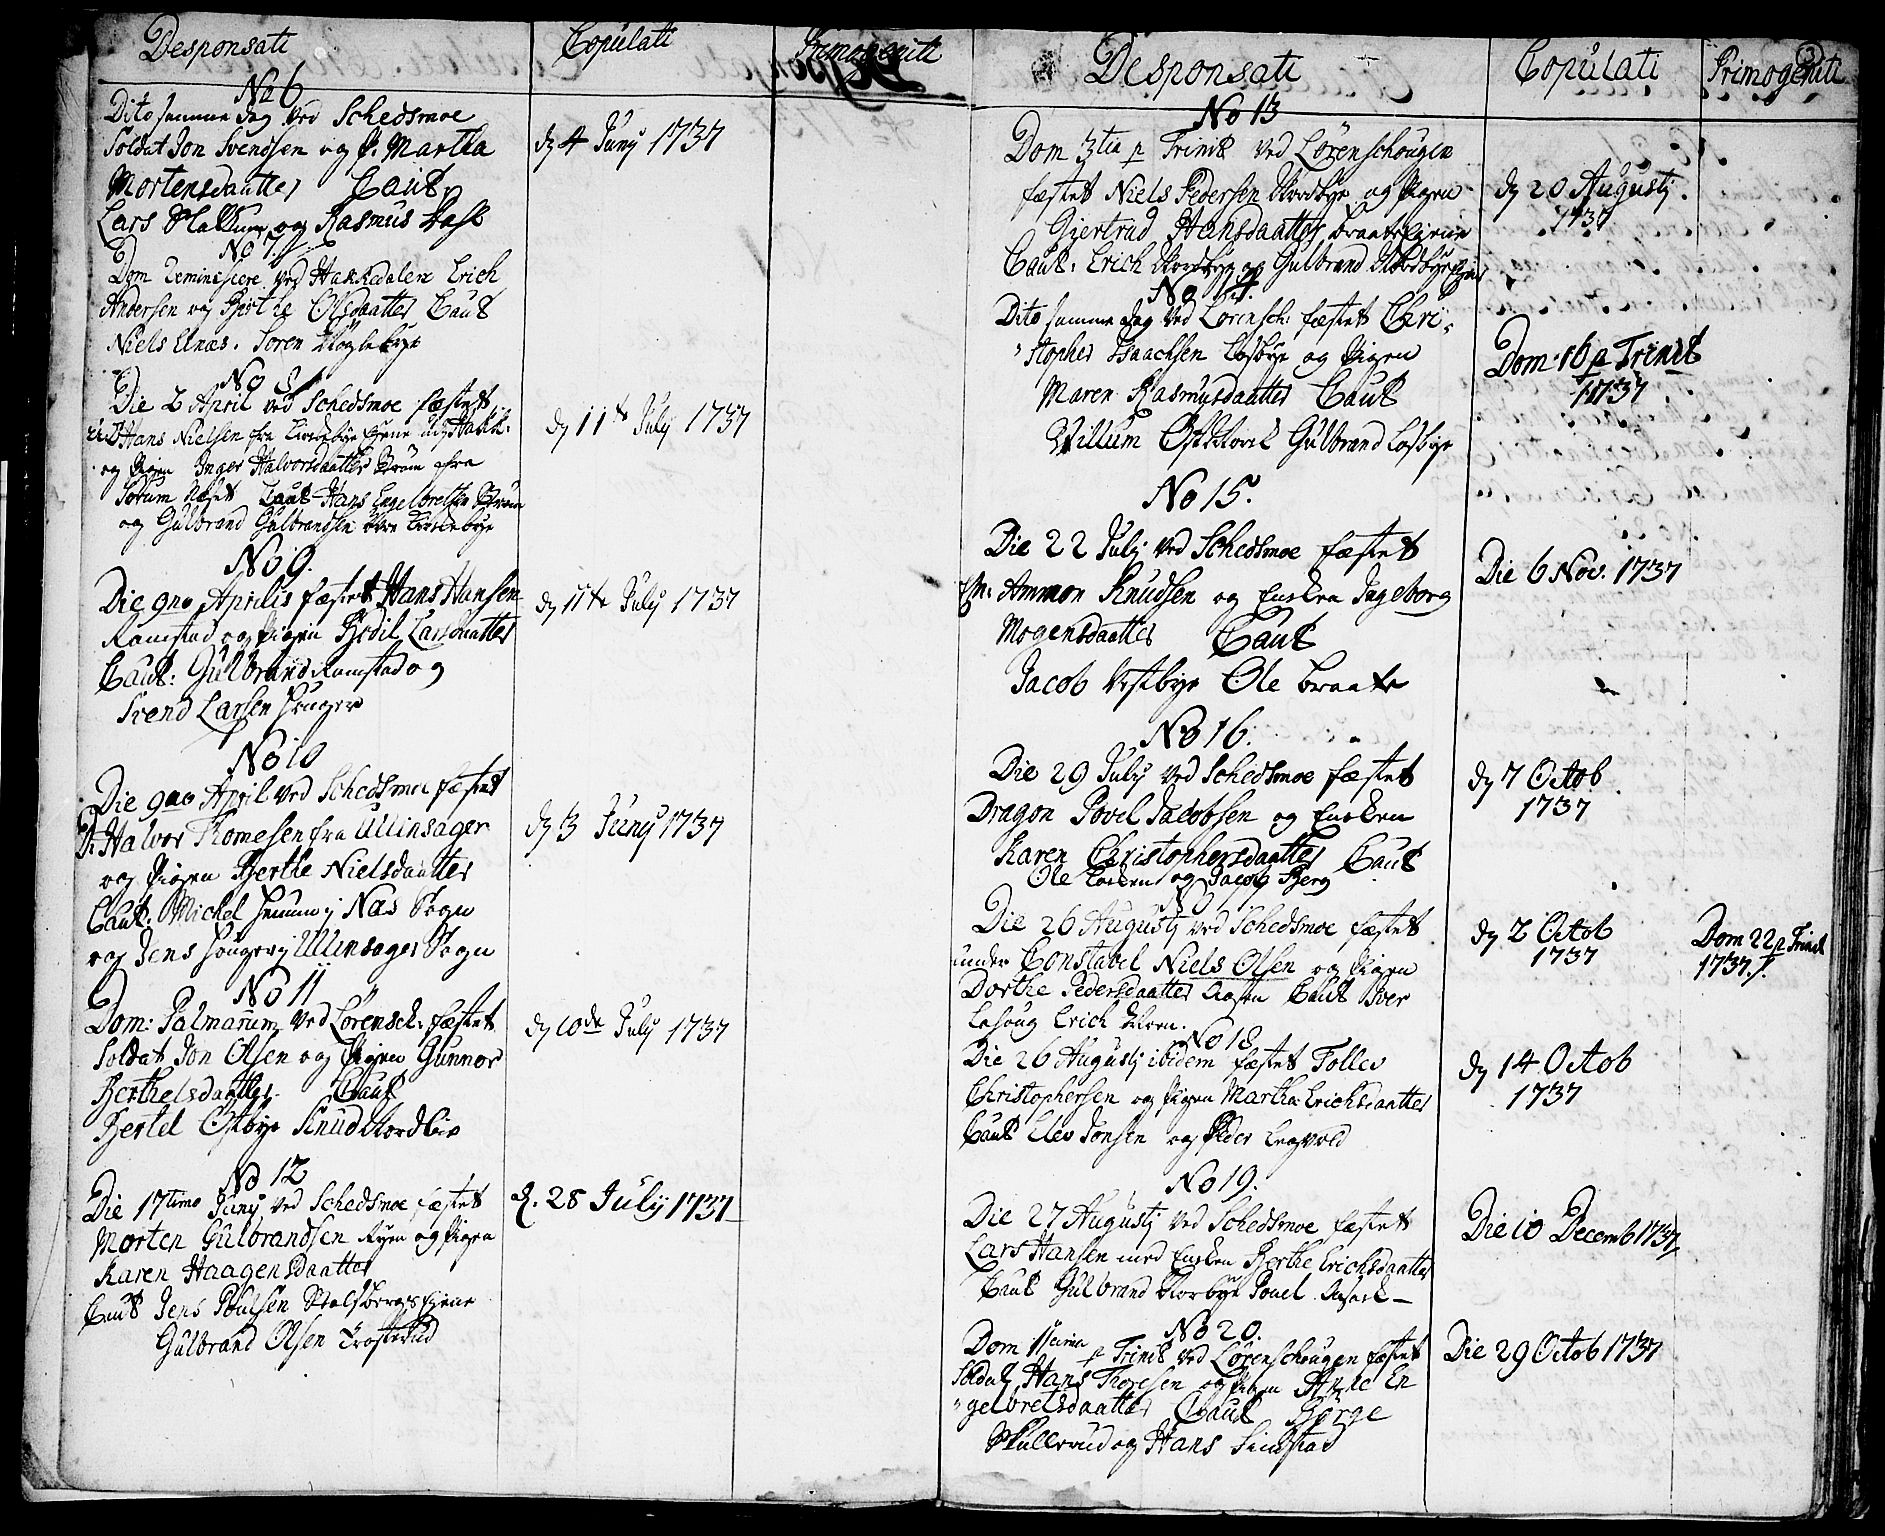 Desponsati Copulati Primogeniti
No 6
Dito samme dag ved Schedsmoe
Soldat Jon Svendsen og P. Martha
Mortensdaatter Caut.
Lars og Rasmus Dahl
dj 4 Junij 1737
No 7.
Dom Reminiscere ved Hakkedalen Erich
Andersen og Birthe Olsdaatter Caut
Niels Unæs. Soren
No 8
Die 2 April ved Schedsmoe fæstet
Hans Nielsen fra
og Pigen Inger Halvorsdaatter Strøm fra
Sørum Næset Caut Hans Engelbretsen Strøm
og Gulbrand Gulbrandsen
dj 11te July 1737
No 9.
Die 9no Aprilis fæstet Hans Hansen
Ramstad og Pigen Bodil Larsdaatter
Caut: Gulbrand Ramstad og
Svend Larsen Houger
dj 11te July 1737
No 10
Die 9no April ved Schedsmoe fæstet
Halvor Thomesen fra Ullinsager
og Pigen Berthe Nielsdaatter
Caut. Michel i Næs Sogn
og Jens Houger i Ullinsager Sogn
dj 3 Junij 1737
No 11
Dom: Palmarum ved Lörensch: fæstet
Soldat Jon Olsen og Pigen Gunnor
Berthelsdaatter. Caut
Bertel Ostbye Knud Nordbye
dj 10de July 1737
No 12
Die 17timo Junij ved Schedsmoe fæstet
Morten Gulbrandsen Ryen og Pigen
Karen Haagensdaatter
Caut Jens Poulsen Stalsbergs Ejene
Gulbrand Olsen Trosterud
d. 28 Julij 1737
Desponsati Copulati Primogeniti
3
No 13
Dom 3tia p Trinit ved Lörenschougen
fæstet Niels Pedersen Nordbye og Pigen
Giertrud Hansdaatter Braate Ejene
Caut: Erich Nordbye og Gulbrand Nordbye Ejene
dj 20 Augustj.
1737
No 14.
Dito samme dag ved Lörensch: fæstet Chri-
stopher Isaachsen Losbye og Pigen
Maren Rasmusdaatter Caut
Willum Gulbrand Losbye
Dom. 16 p Trinit
1737
No 15.
Die 22 Julj ved Schedsmoe fæstet
Em: Ammon Knudsen og Encken Ingeborg
Mogensdaatter Caut
Jacob Vestbye Ole Braate
Die 6 Nov. 1737
No 16.
Die 29 July ved Schedsmoe fæstet
Dragon Povel Jacobsen og Encken
Karen Christophersdaatter Caut
Ole og Jacob Berg
dj 7 Octob
1737
No 17
Die 26 Augustj ved Schedsmoe fæstet
under Constabel Niels Olsen og Pigen
Dorthe Pedersdaatter Aasen Caut Iver
Lahoug Erich
dj 2 Octob
1737
Dom 22 p Trinit
1737.
No 18
Die 26 Augustj ibidem fæstet Tollev
Christophersen og Pigen Martha Erichsdaatter
Caut Elev Jonsen og Peder Leqvold
dj 14 Octob
1737
No 19.
Die 27 Augustj ved Schedsmoe fæstet
Lars Hansen med Encken Berthe Erichsdaatter
Caut Gulbrand Norbye Povel Asack
Die 10 Decemb 1737
No 20.
Dom 11cima p Trinit ved Lörenschougen fæstet
Soldat Hans Thoresen og Pigen Anne En
gelbretsdaatter Caut Börge
Skullerud og Hans
Die 29 Octob 1737